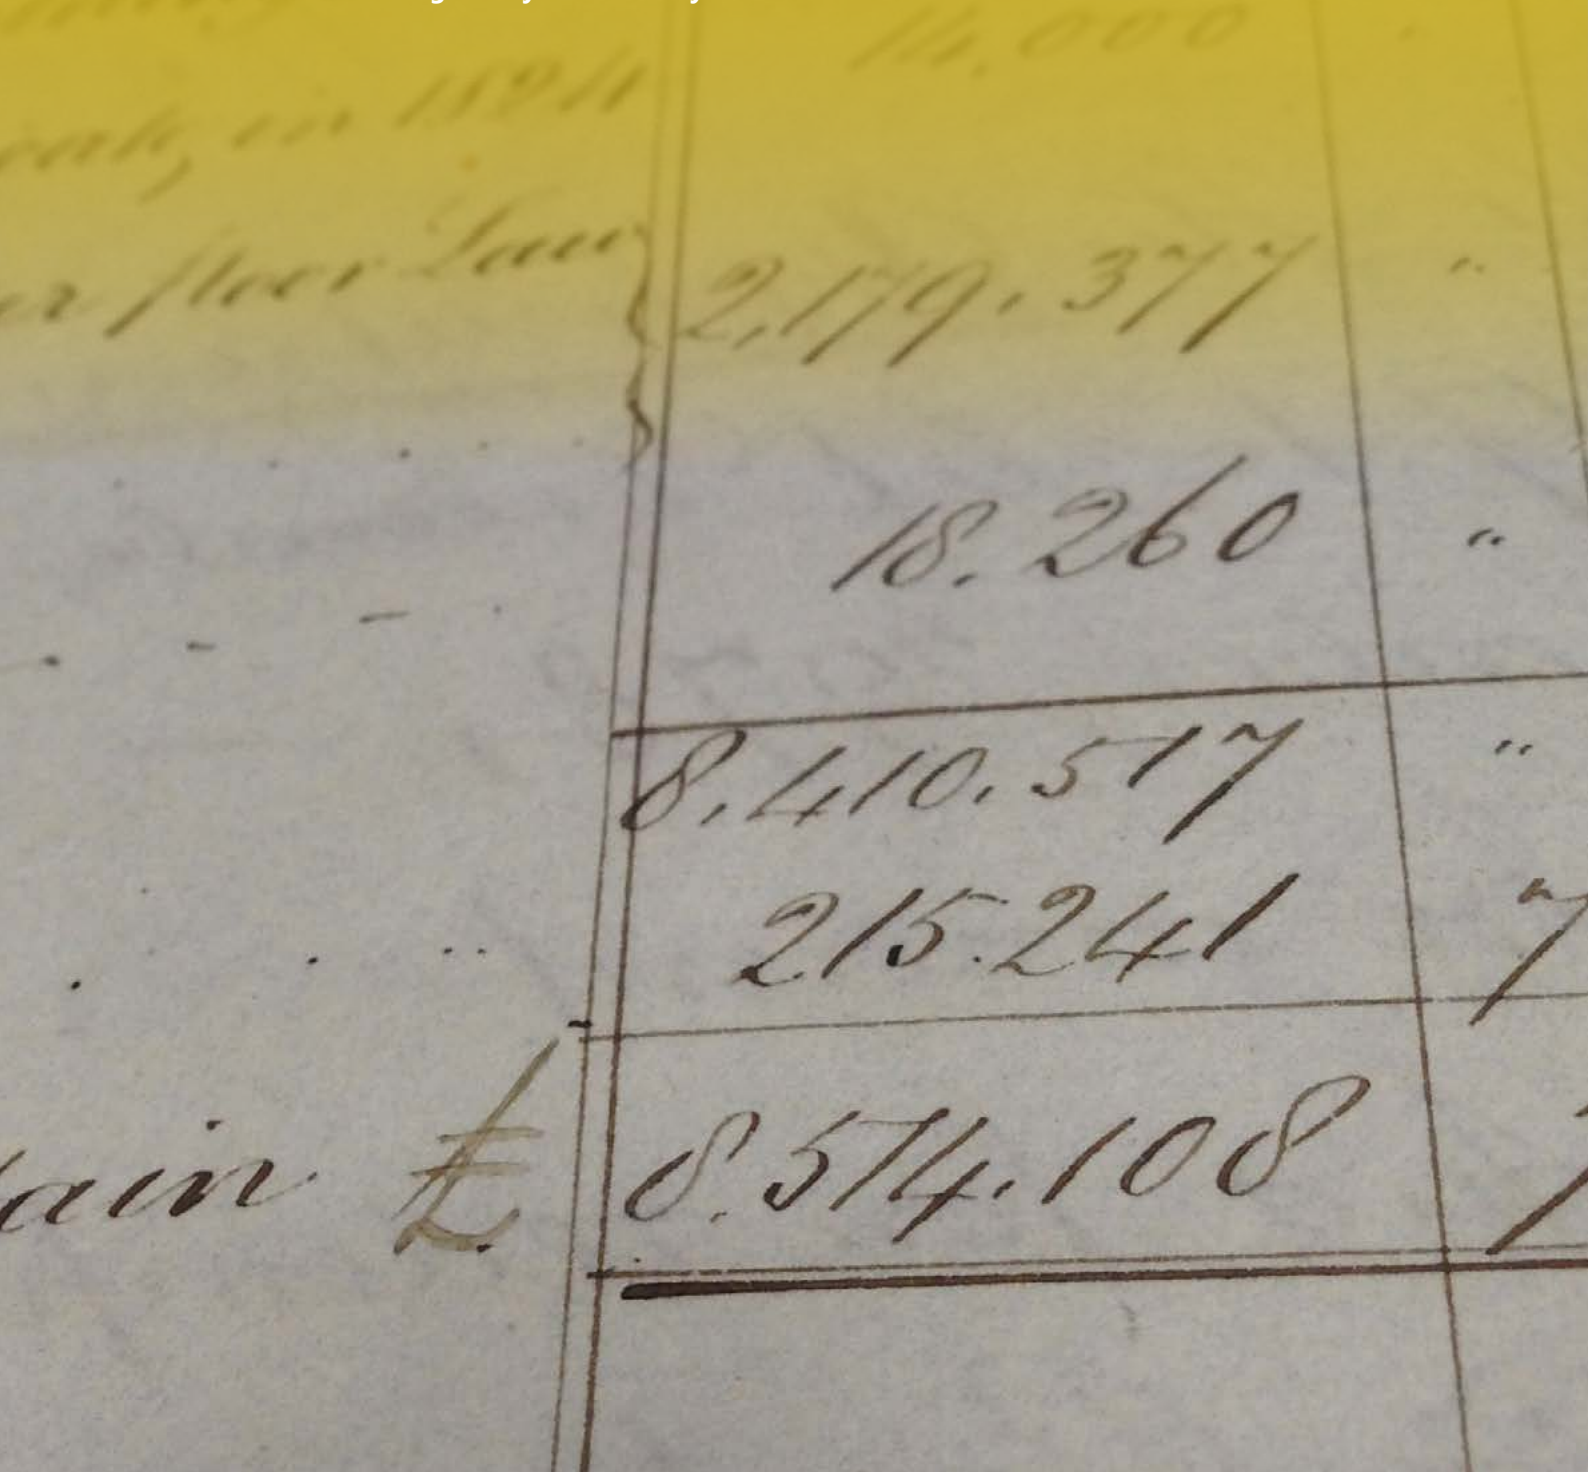 14,000
in 1824
poor Law 2,179,377 "
18.260 "
8,410,517 "
215.241 7
tain £ 8.574.108 7